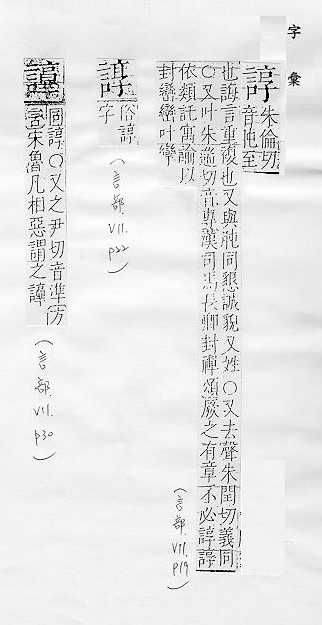 字彙
諄
朱倫切
音肫至
也誨言重複也又與肫同懇誠貌又姓○又去聲朱閏切義同
○又叶朱遄切音專漢司馬長卿封禪頌厥之有章不必諄諄
依類託寓諭以
封巒巒叶攣
(言部 VII. p19)
俗諄
字
(言部 VII. p22)
同諄○又之尹切音準方
言宋魯凡相惡謂之
(言部 VII. p30)